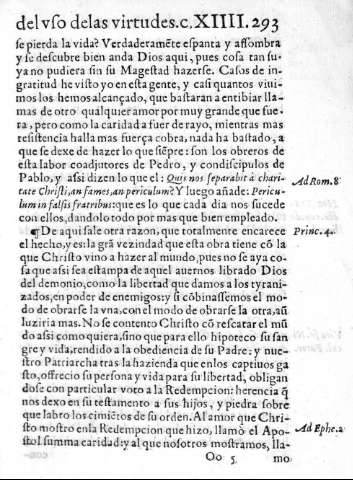 del vso de las virtudes. c. XIIII. 293
se pierda la vida? Verdaderamẽte espanta y assombra
y se descubre bien anda Dios aqui, pues cosa tan su
ya no pudiera sin su Magestad hazerse. Casos de in-
gratitud he visto yo en esta gente, y casi quantos viui-
mos los hemos alcançado, que bastaran a entibiar lla-
mas de otro qualquier amor por muy grande que fue-
ra, pero como la caridad a fuer de rayo, mientras mas
resistencia halla mas fuerça cobra, nada ha bastado, a
que se dexe de hazer lo que siẽpre: son los obreros de
esta labor coadjutores de Pedro, y condiscipulos de
Pablo, y assi dizen lo que el: Quis nos separabit à chari-
Ad Rom. 8
tate Christi, an fames, an periculum? Y luego añade: Pericu-
lum in falsis fratribus: que es lo que cada dia nos sucede
con ellos, dandolo todo por mas que bien empleado.
¶ De aqui sale otra razon, que totalmente encarece
Princ. 4.
el hecho, y es: la grã vezindad que esta obra tiene cõ la
que Christo vino a hazer al mundo, pues no se aya co-
sa que assi sea estampa de aquel auernos librado Dios
del demonio, como la libertad que damos a los tyrani-
zados, en poder de enemigos: y si cõbinassemos el mo-
do de obrarse la vna, con el modo de obrarse la otra, aũ
luziria mas. No se contento Christo cõ rescatar el mũ
do assi como quiera, sino que para ello hipoteco su san
gre y vida, rendido a la obediencia de su Padre: y nue-
stro Patriarcha tras la hazienda que en los captiuos ga
sto, ofrecio su persona y vida para su libertad, obligan
dose con particular voto a la Redempcion: herencia q̃
nos dexo en su testamento a sus hijos, y piedra sobre
que labro los cimiẽtos de su orden. Al amor que Chri-
sto mostro en la Redempcion que hizo, llamò el Apo-
Ad Ephe. 2
stol summa caridad: y al que nosotros mostramos, lla-
Oo 5 mo